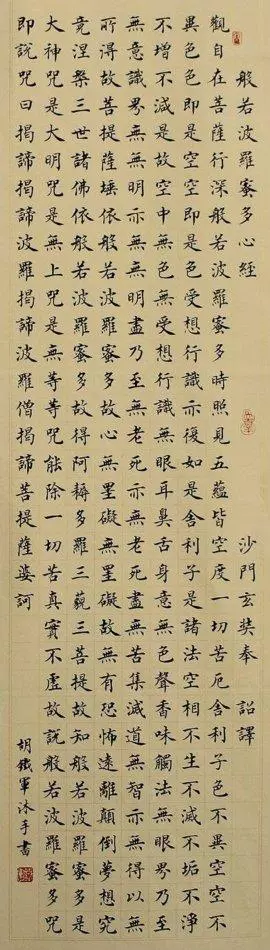 般若波羅蜜多心經 沙門玄奘奉 詔譯
觀自在菩薩行深般若波羅蜜多時照見五蘊皆空度一切苦厄舍利子色不異空空不
異色色即是空空即是色受想行識亦復如是舍利子是諸法空相不生不滅不垢不淨
不增不減是故空中無色無受想行識無眼耳鼻舌身意無色聲香味觸法無眼界乃至
無意識界無無明亦無無明盡乃至無老死亦無老死盡無苦集滅道無智亦無得以無
所得故菩提薩埵依般若波羅蜜多故心無罣礙無罣礙故無有恐怖遠離顛倒夢想究
竟涅槃三世諸佛依般若波羅蜜多故得阿耨多羅三藐三菩提故知般若波羅蜜多是
大神咒是大明咒是無上咒是無等等咒能除一切苦真實不虛故說般若波羅蜜多咒
即說咒曰揭諦揭諦波羅揭諦波羅僧揭諦菩提薩婆訶
胡鐵軍沐手書